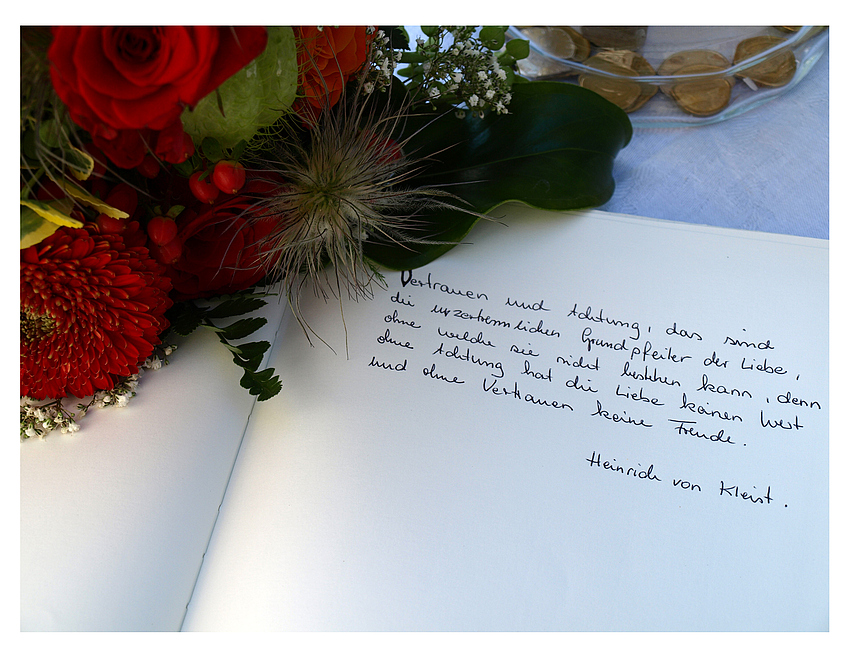 Vertrauen und Achtung, das sind
die unzertrennlichen Grundpfeiler der Liebe,
ohne welche sie nicht bestehen kann, denn
ohne Achtung hat die Liebe keinen Wert
und ohne Vertrauen keine Freude.
Heinrich von Kleist.